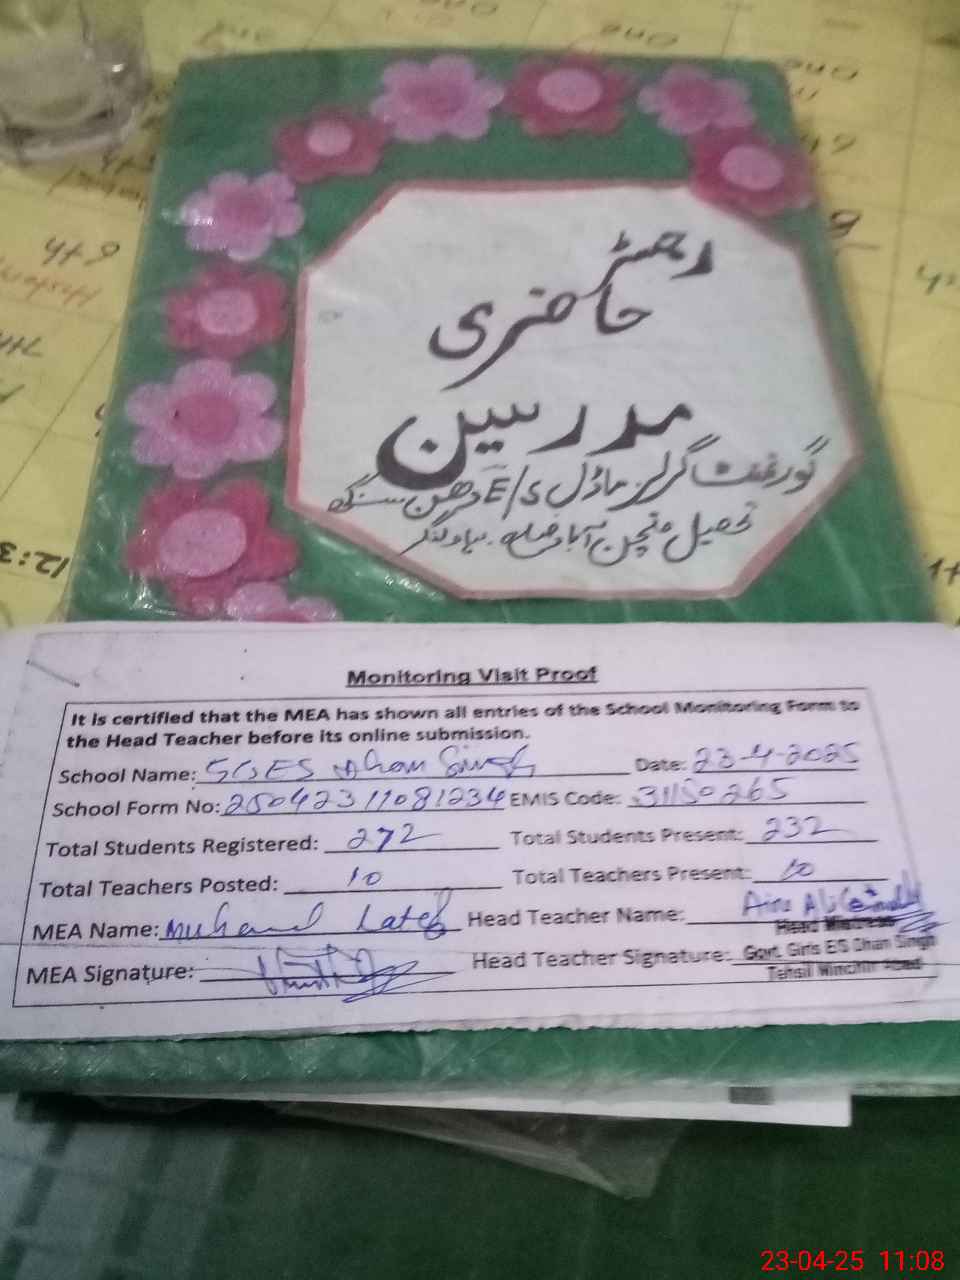 رجسٹر
حاضری
مدرسین
گورنمنٹ گرلز ماڈل E/S دھن سنگھ
تحصیل منچن آباد ضلع بہاولنگر
Monitoring Visit Proof
It is certified that the MEA has shown all entries of the School Monitoring Form to
the Head Teacher before its online submission.
School Name: GGES Dhan Singh Date: 23-4-2025
School Form No: 25042311081234 EMIS Code: 31150265
Total Students Registered: 272 Total Students Present: 232
Total Teachers Posted: 10 Total Teachers Present: 10
MEA Name: Head Teacher Name:
Head Mistress
MEA Signature: Head Teacher Signature: Govt. Girls ES Dhan Singh
Tehsil Minchin Abad
23-04-25 11:08